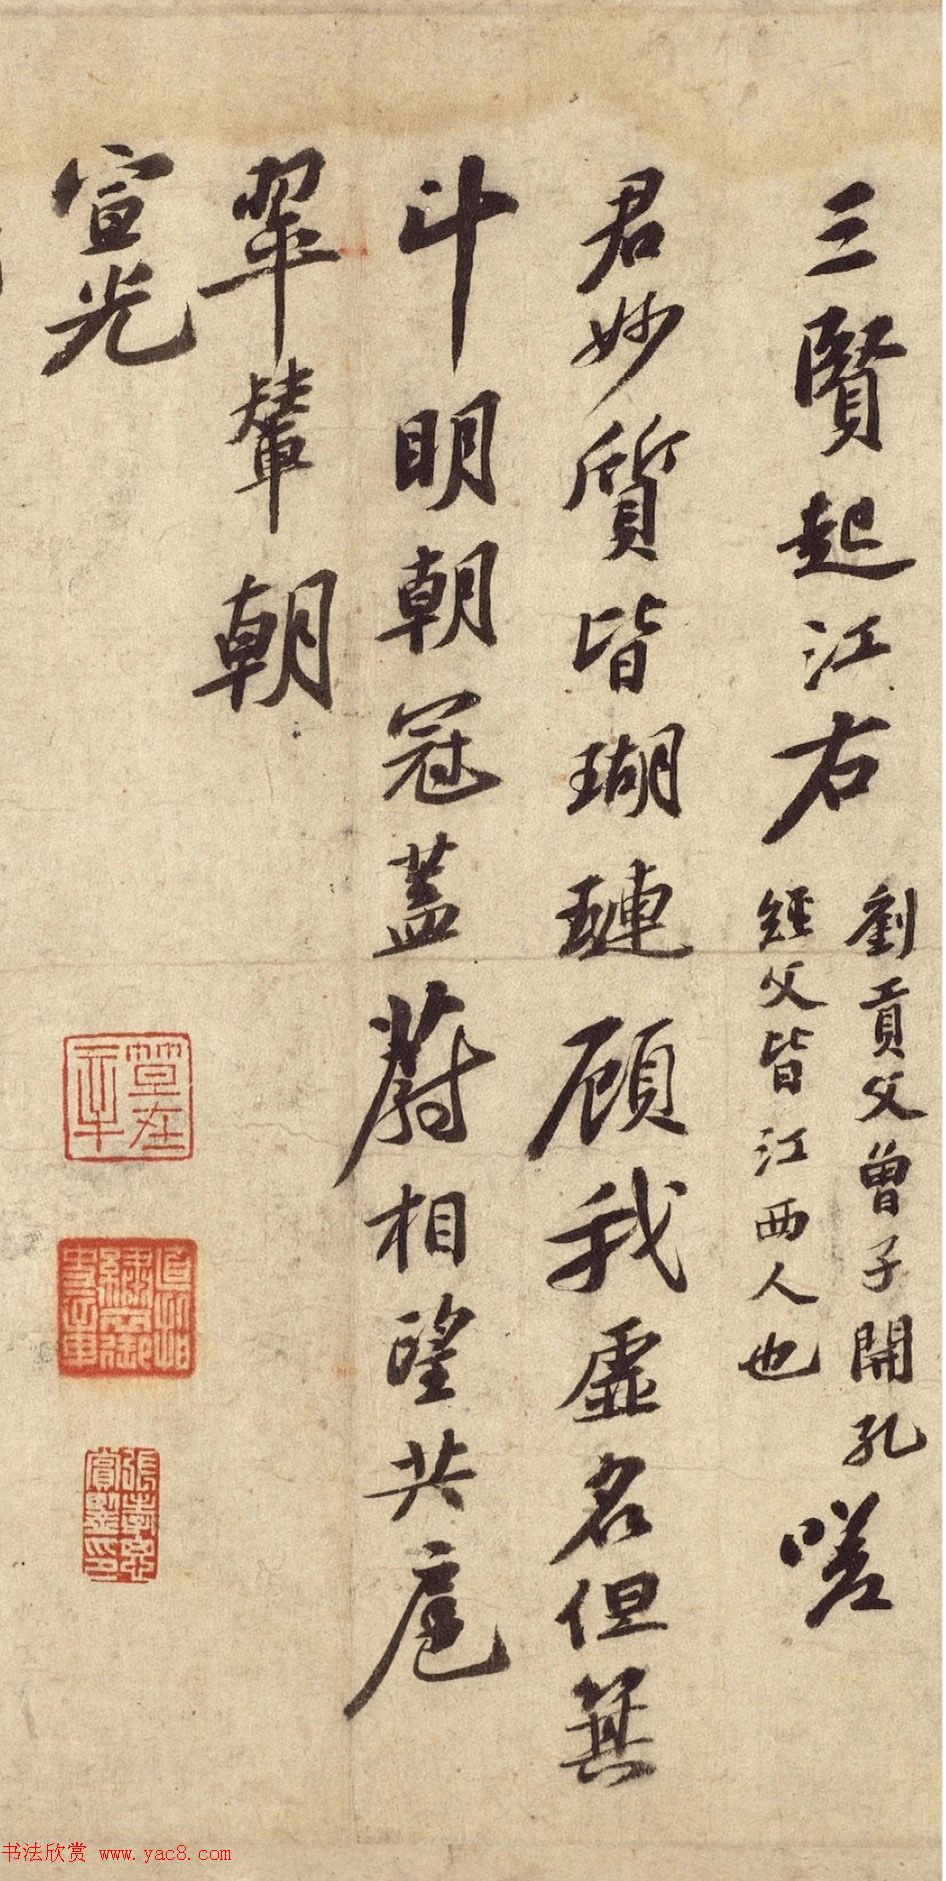 三賢起江右
劉貢父曾子開孔
經父皆江西人也
嗟
君妙質皆瑚璉顧我虛名但箕
斗明朝冠蓋蔚相望共扈
翠輦朝
宣光
書法欣赏 www.yac8.com